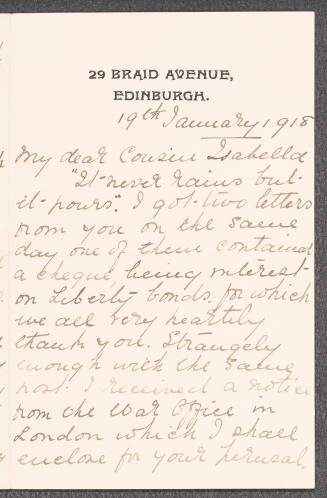 29 BRAID AVENUE,
EDINBURGH.
19th January 1918
My dear Cousin Isabella
"It never rains but
it pours". I got two letters
from you on the same
day one of them contained
a cheque, being interest
on Liberty bonds, for which
we all very heartily
thank you. Strangely
enough with the same
post I received a notice
from the War Office in
London which I shall
enclose for your perusal.